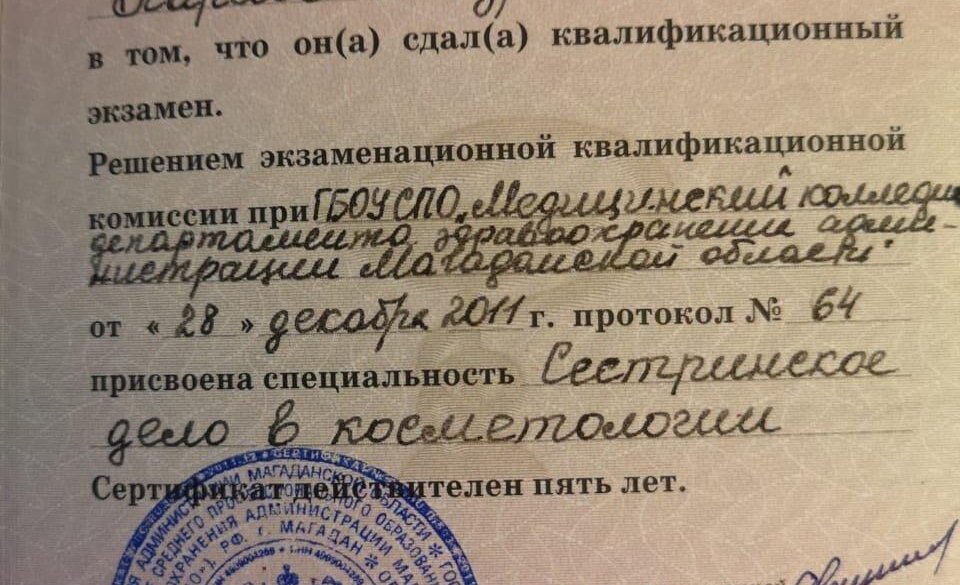 в том, что он(а) сдал(а) квалификационный
экзамен.
Решением экзаменационной квалификационной
комиссии при ГБОУ СПО „Медицинский колледж
департамента здравоохранения адми-
нистрации Магаданской области"
от « 28 » декабря 2011 г. протокол № 64
присвоена специальность Сестринское
дело в косметологии
Сертификат действителен пять лет.
АДМИНИСТРАЦИИ МАГАДАНСКОЙ ОБЛАСТИ * ГОС
СРЕДНЕГО ПРОФЕССИОНАЛЬНОГО ОБРАЗОВАНИЯ
ОХРАНЕНИЯ АДМИНИСТРАЦИИ МАГ
РФ. г. МАГАДАН